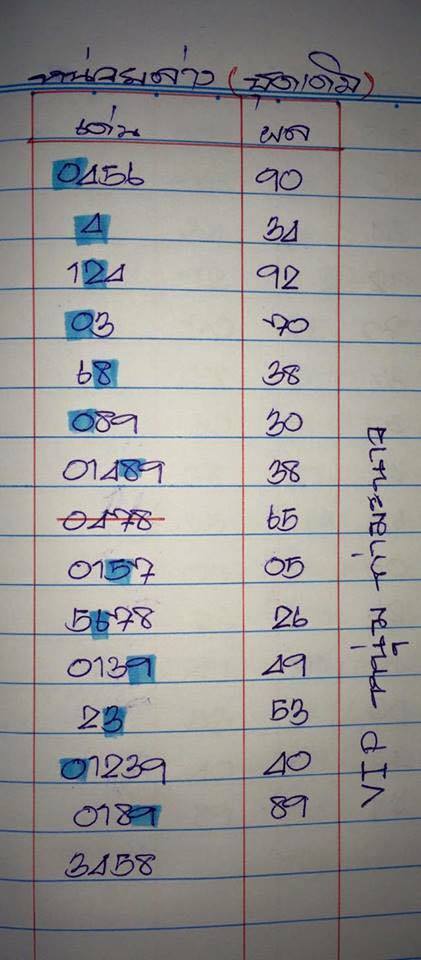 หน่วยล่าง (ชุดเดิม)
เด่น ผล
0456 90
4 34
124 92
03 70
68 38
089 30
01489 38
0478 65
0157 05
5678 26
0139 49
23 53
01239 40
0189 89
3458
VIP